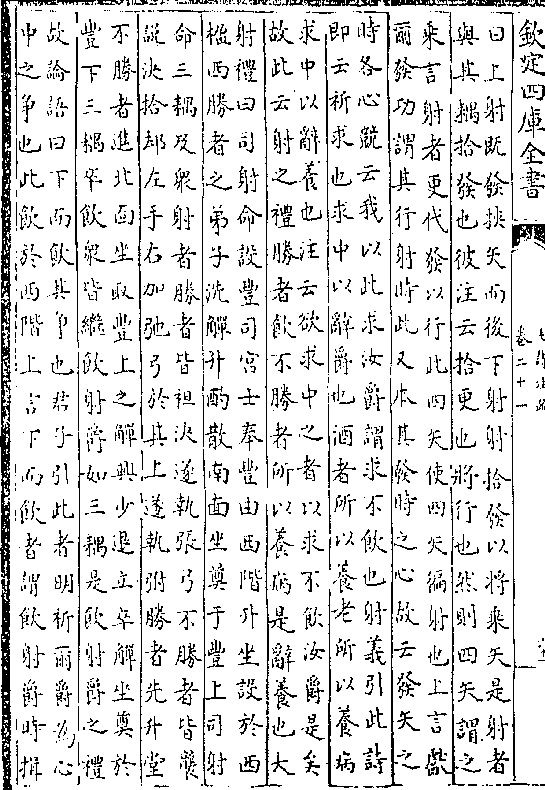 欽定四庫全書
卷二十一
曰上射既發挾矢而後下射射拾發以將乗矢是射者
與其耦拾發也彼注云拾更也將行也然則四矢謂之
乗言射者更代發以行此四矢使四矢徧射也上言獻
爾發功謂其行射時此又本其發時之心故云發矢之
時各心競云我以此求汝爵謂求不飲也射義引此詩
即云祈求也求中以辭爵也酒者所以養老所以養病
求中以辭養也注云欲求中之者以求不飲汝爵是矣
故此云射之禮勝者飲不勝者所以養病是辭養也大
射禮曰司射命設豐司宫士奉豐由西階升坐設於西
楹西勝者之弟子洗觶升酌散南面坐奠于豐上司射
命三耦及衆射者勝者皆袒決遂執張弓不勝者皆襲
説決拾却左手右加弛弓於其上遂執弣勝者先升堂
不勝者進北面坐取豐上之觶興少退立卒觶坐奠於
豐下三耦卒飲衆皆繼飲射爵如三耦是飲射爵之禮
故論語曰下而飲其爭也君子引此者明祈爾爵為心
中之爭也此飲於西階上言下而飲者謂飲射爵時揖